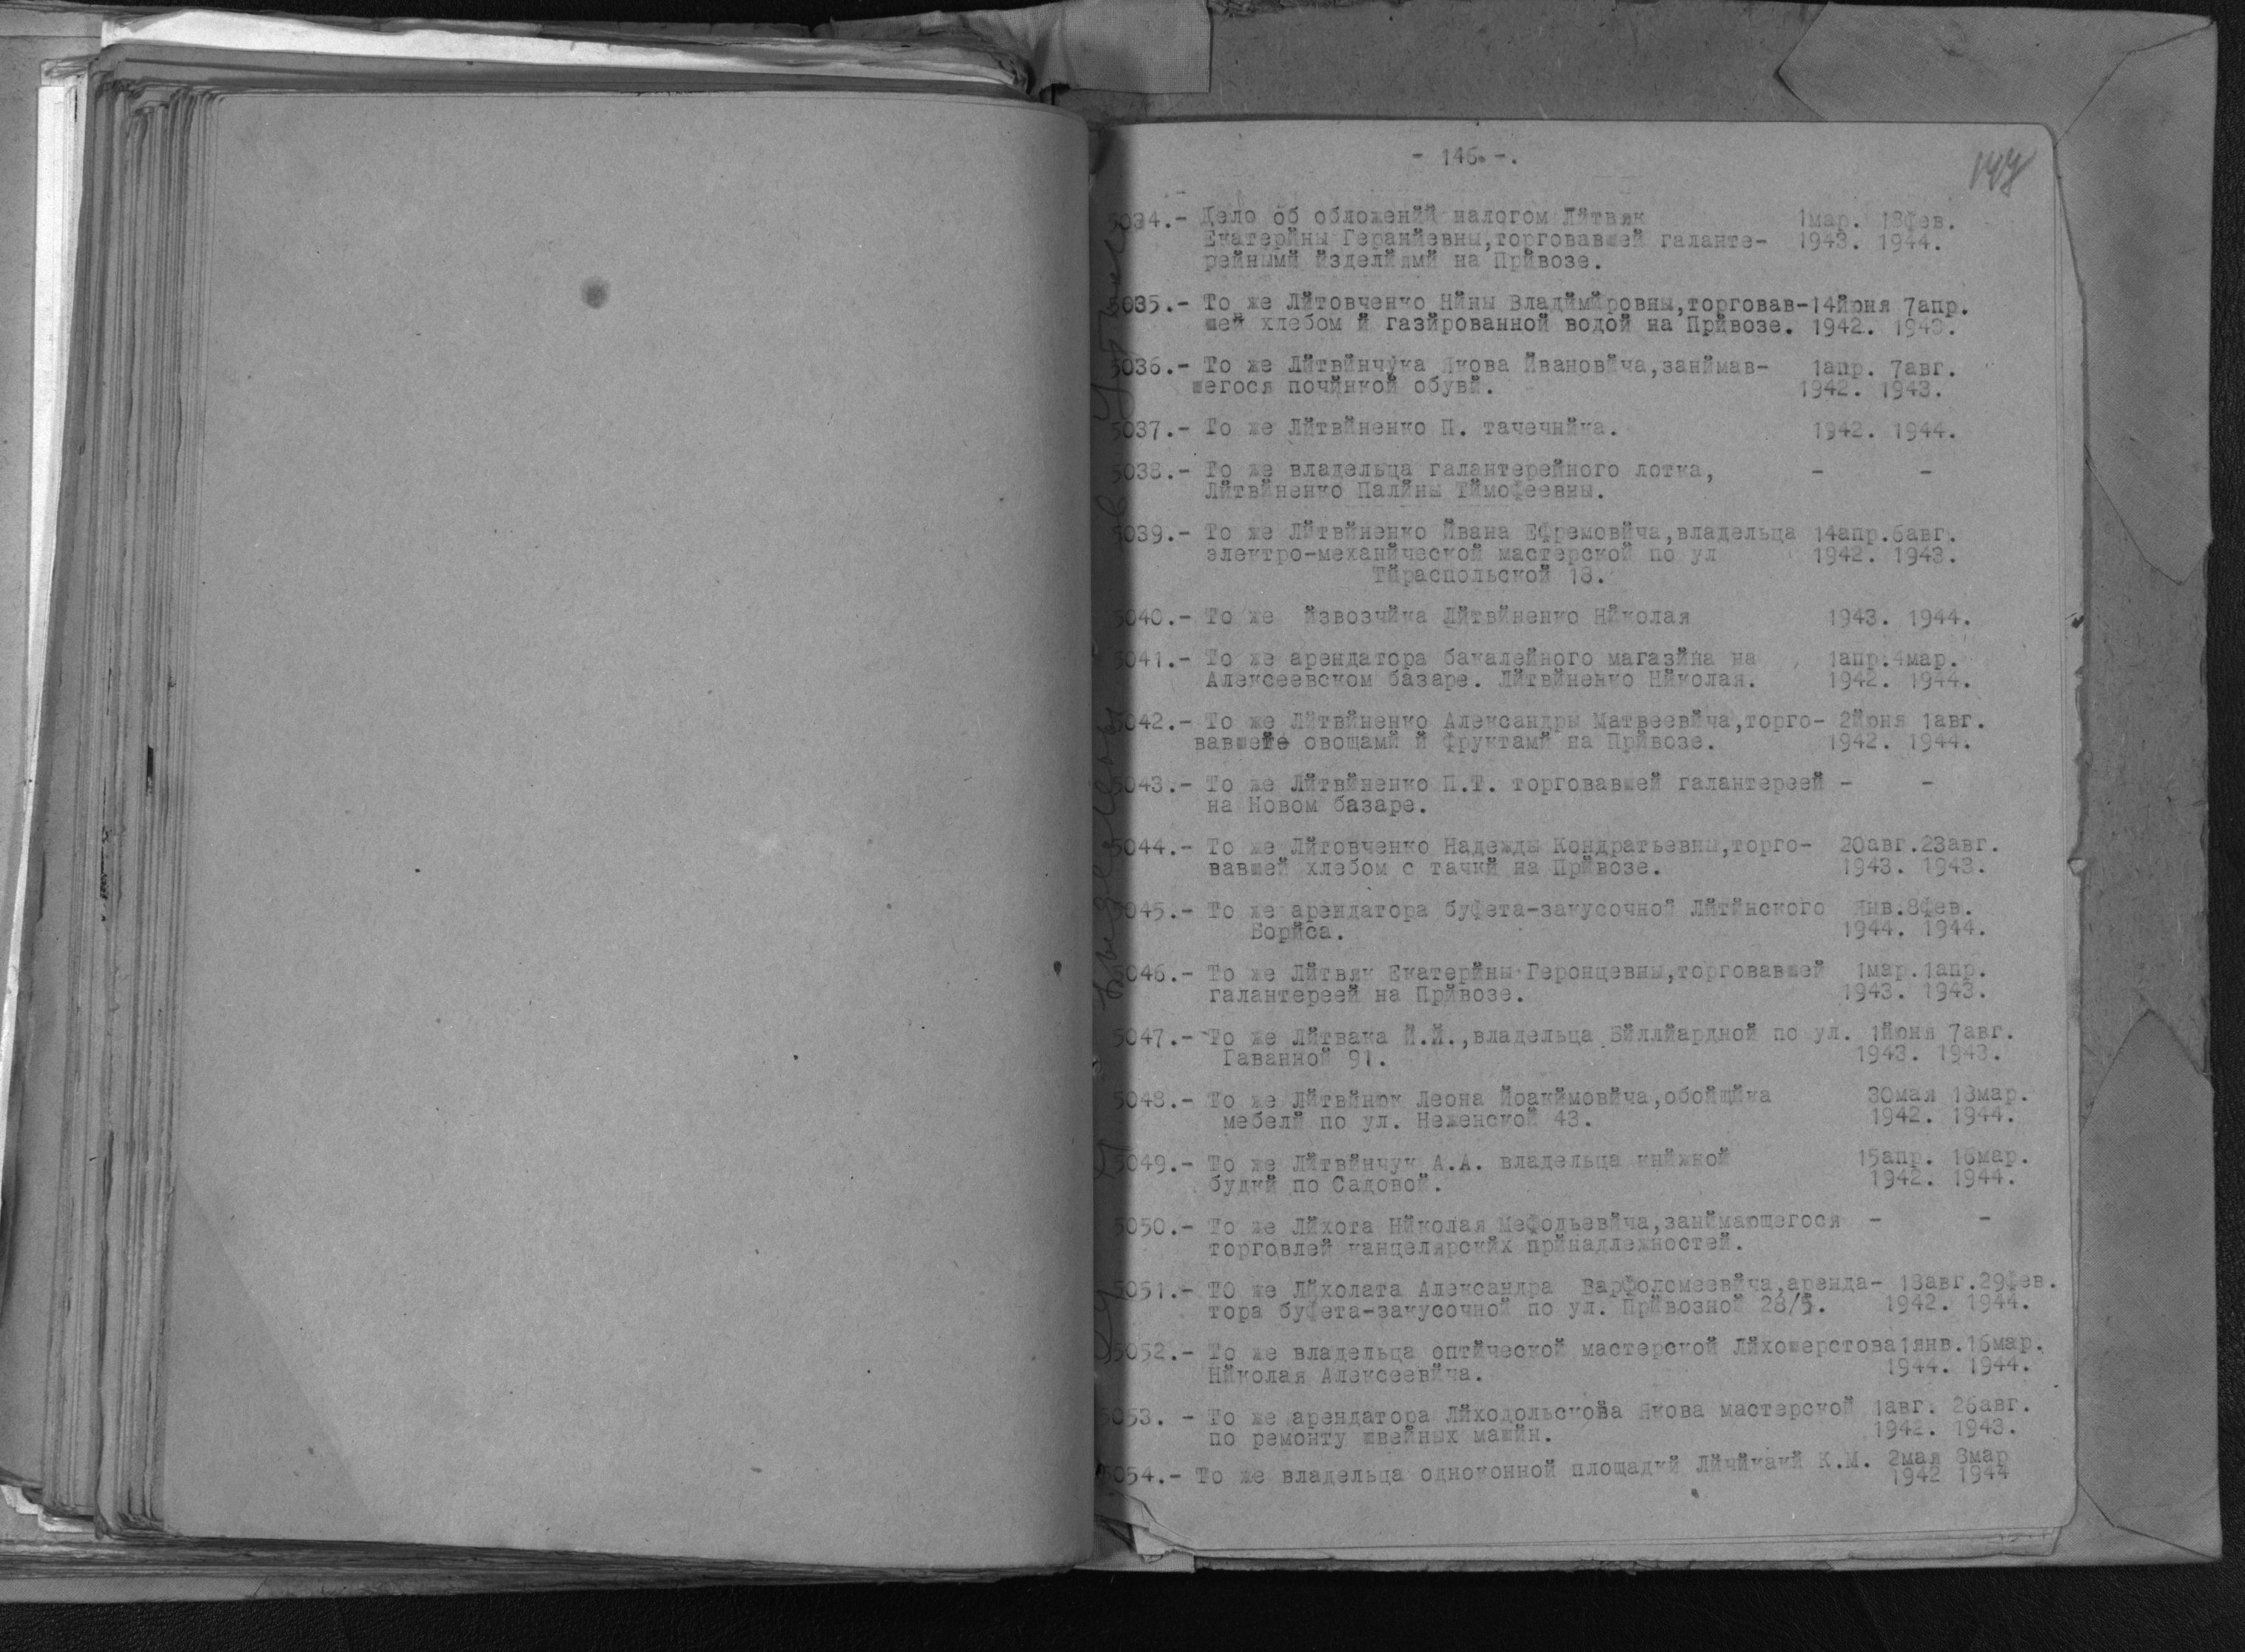 - 146. -.
147
5034.- Дело об обложений налогом Лйтвяк 1мар. 18фев.
Екатерйны Геранйевны,торговавшей галанте- 1943. 1944.
рейнымй йзделйямй на Прйвозе.
5035.- То же Лйтовченко Нйны Владймйровны,торговав-14йюня 7апр.
шей хлебом й газйрованной водой на Прйвозе. 1942. 1943.
5036.- То же Лйтвйнчука Якова Йвановйча,занймав- 1апр. 7авг.
шегося почйнкой обувй. 1942. 1943.
5037.- То же Лйтвйненко П. тачечнйка. 1942. 1944.
5038.- То же владельца галантерейного лотка, - -
Лйтвйненко Палйны Тймофеевны.
5039.- То же Лйтвйненко Йвана Ефремовйча,владельца 14апр.6авг.
электро-механйческой мастерской по ул 1942. 1943.
Тйраспольской 18.
5040.- То же йзвозчйка Лйтвйненко Нйколая 1943. 1944.
5041.- То же арендатора бакалейного магазйна на 1апр.4мар.
Алексеевском базаре. Лйтвйненко Нйколая. 1942. 1944.
5042.- То же Лйтвйненко Александры Матвеевйча,торго- 2йюня 1авг.
вавшейе овощамй й фруктамй на Прйвозе. 1942. 1944.
5043.- То же Лйтвйненко П.Т. торговавшей галантереей - -
на Новом базаре.
5044.- То же Лйтовченко Надежды Кондратьевны,торго- 20авг.23авг.
вавшей хлебом с тачкй на Прйвозе. 1943. 1943.
5045.- То же арендатора буфета-закусочной Лйтйнского янв.8фев.
Борйса. 1944. 1944.
5046.- То же Лйтвяк Екатерйны Геронцевны,торговавшей 1мар.1апр.
галантереей на Прйвозе. 1943. 1943.
5047.- То же Лйтвака Й.Й.,владельца Бйллйардной по ул. 1йюня 7авг.
Гаванной 91. 1943. 1943.
5048.- То же Лйтвйнюк Леона Йоакймовйча,обойщйка 30мая 18мар.
мебелй по ул. Неженской 43. 1942. 1944.
5049.- То же Лйтвйнчук А.А. владельца кнйжной 15апр. 16мар.
будкй по Садовой. 1942. 1944.
5050.- То же Лйхота Нйколая Мефодьевйча,занймающегося - -
торговлей канцелярскйх прйнадлежностей.
5051.- ТО же Лйхолата Александра Варфоломеевйча,аренда- 18авг.29фев.
тора буфета-закусочной по ул. Прйвозной 28/5. 1942. 1944.
5052.- То же владельца оптйческой мастерской Лйхошерстова1янв.16мар.
Нйколая Алексеевйча. 1944. 1944.
5053. - То же арендатора Лйходольскова Якова мастерской 1авг. 26авг.
по ремонту швейных машйн. 1942. 1943.
5054.- То же владельца одноконной площадкй Лйчйкакй К.М. 2мая 8мар
1942 1944